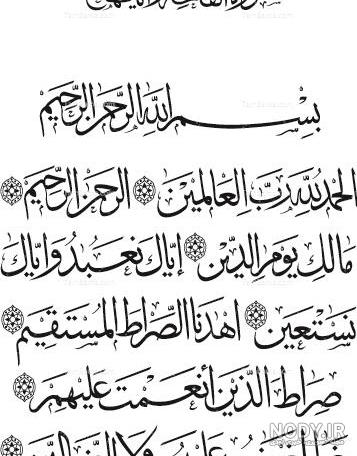 بسم الله الرحمن الرحيم
الحمد لله رب العالمين الرحمن الرحيم
مالك يوم الدين إياك نعبد وإياك
نستعين اهدنا الصراط المستقيم
صراط الذين أنعمت عليهم
NODY.IR